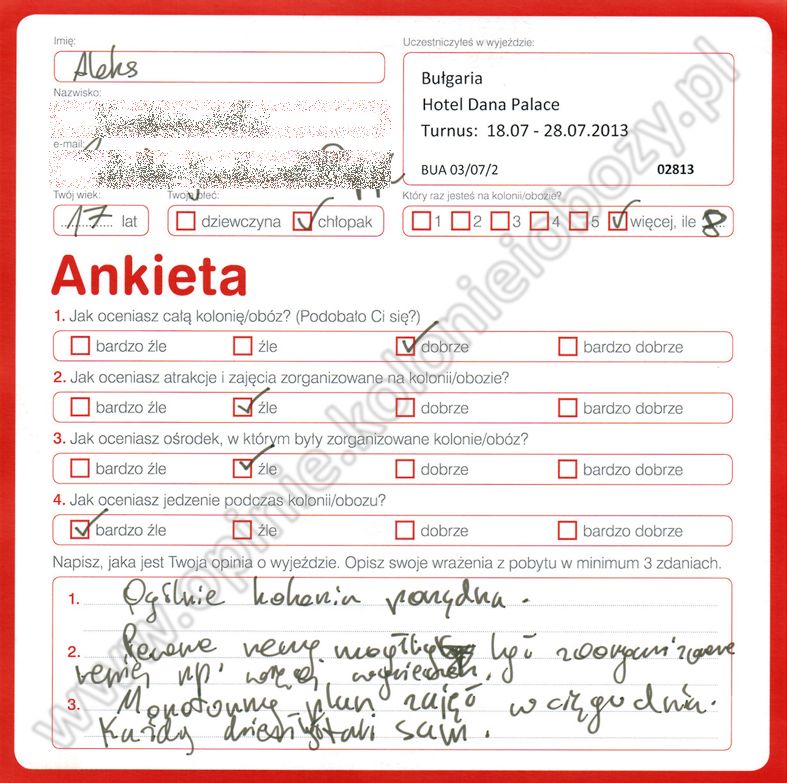 Imię:
Aleks
Uczestniczyłeś w wyjeździe:
Bułgaria
Hotel Dana Palace
Turnus: 18.07 - 28.07.2013
BUA 03/07/2 02813
Nazwisko:
e-mail:
Twój wiek:
17 lat
Twoja płeć:
dziewczyna chłopak
Który raz jesteś na kolonii/obozie?
1 2 3 4 5 więcej, ile 8
Ankieta
1. Jak oceniasz całą kolonię/obóz? (Podobało Ci się?)
bardzo źle źle dobrze bardzo dobrze
2. Jak oceniasz atrakcje i zajęcia zorganizowane na kolonii/obozie?
bardzo źle źle dobrze bardzo dobrze
3. Jak oceniasz ośrodek, w którym były zorganizowane kolonie/obóz?
bardzo źle źle dobrze bardzo dobrze
4. Jak oceniasz jedzenie podczas kolonii/obozu?
bardzo źle źle dobrze bardzo dobrze
Napisz, jaka jest Twoja opinia o wyjeździe. Opisz swoje wrażenia z pobytu w minimum 3 zdaniach.
1. Ogólnie kolonia porządna.
2. Pewne rzeczy mogłyby być zoorganizowane
np. więcej wycieczek.
3. Monotonny plan zajęć w ciągu dnia.
Każdy dzień taki sam.
www.opinie.kolonieiobozy.pl